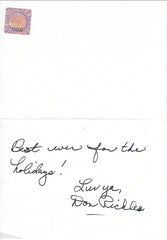 Best ever for the
holidays!
Luv ya,
Don Rickles